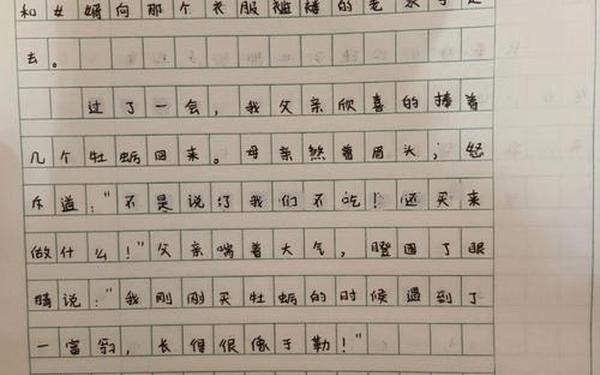 和女婿向那个衣服褴褛的老水手走
去。
过了一会，我父亲欣喜的捧着
几个牡蛎回来。母亲然着眉头，怒
斥道："不是说了我们不吃！还买来
做什么！"父亲喘着大气，瞪圆了眼
睛说："我刚刚买牡蛎的时候遇到了
一富翁，长得很像于勒！"